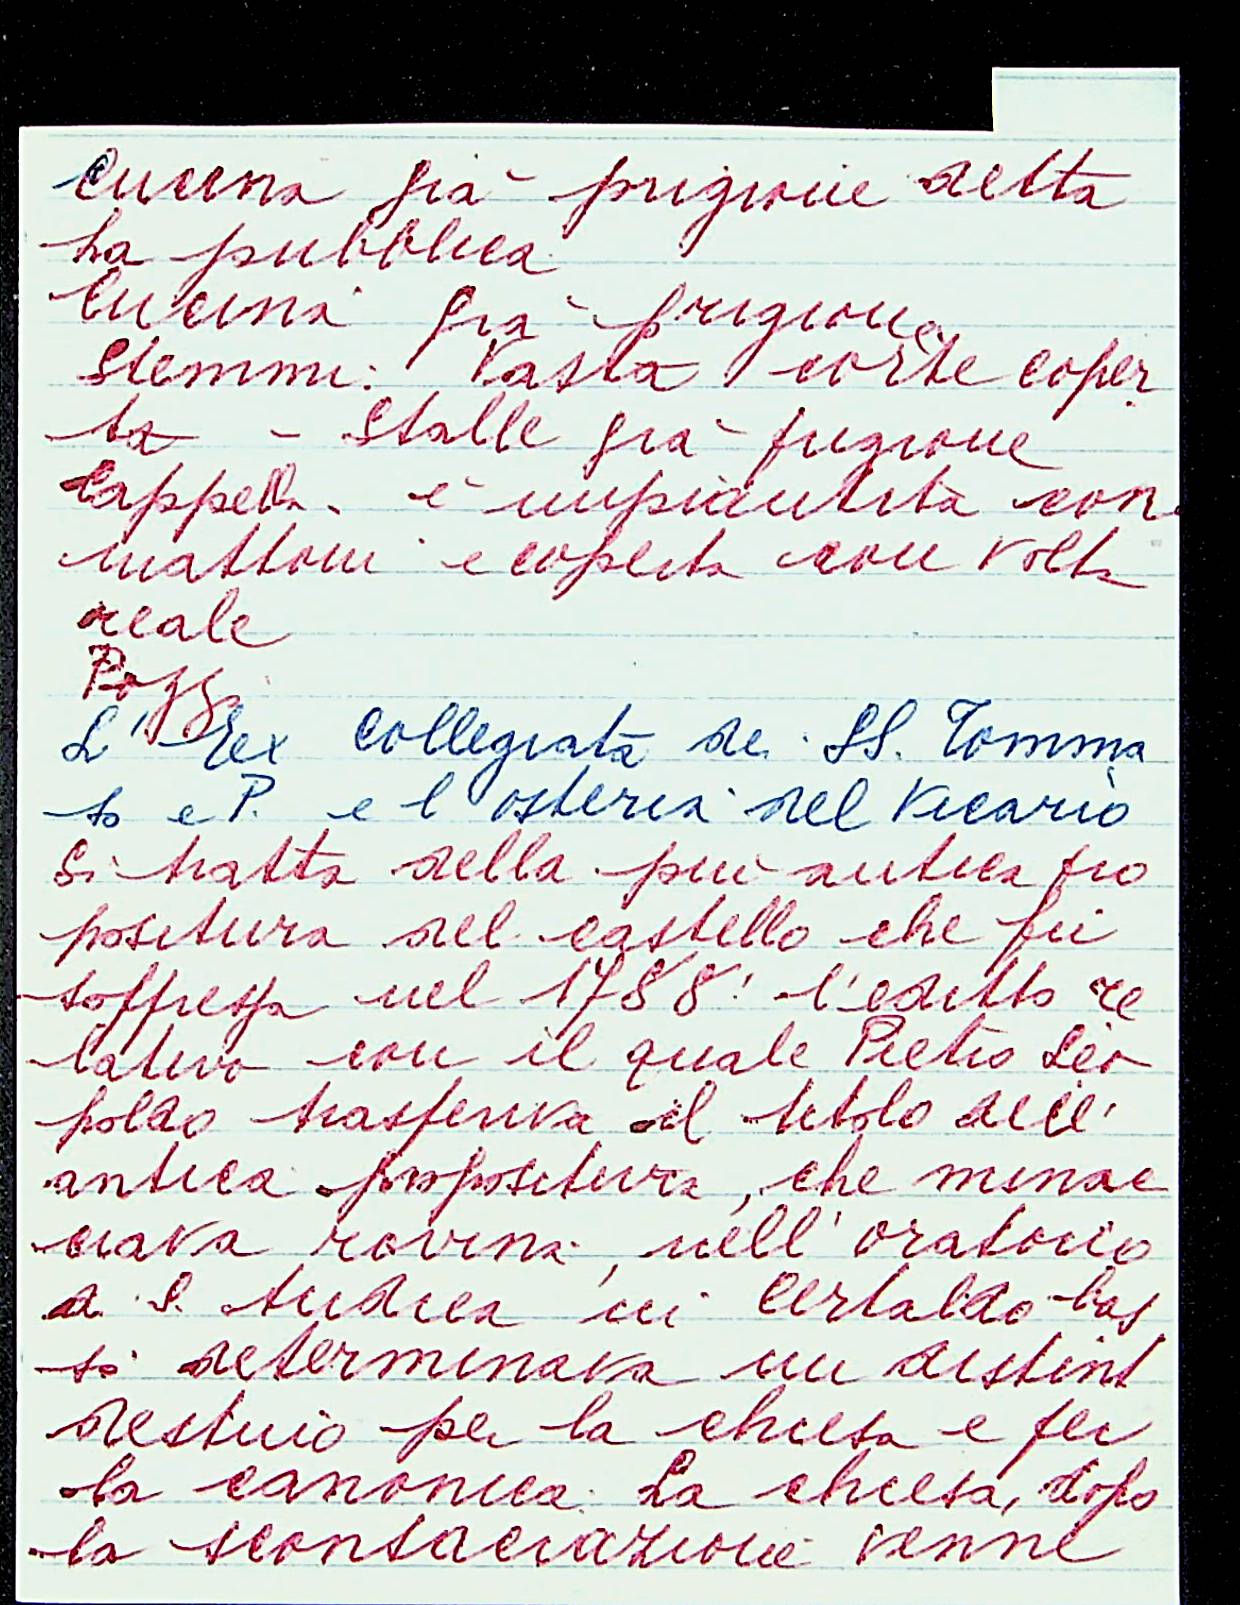 Cucina già prigione detta
la pubblica
Cucina già prigione
Stemmi. Vasta corte coper
ta - Stalle già prigione
Cappella. è impiantita con
mattoni e coperta con volta
reale
Pozzi
L'Ex collegiata dei SS. Tomma
so e P. e l'osteria del Vicario
Si tratta della più antica pro
positura del castello che fu
soppressa nel 1788: l'editto re
lativo con il quale Pietro Leo
poldo trasferiva il titolo dell'
antica propositura, che minac
ciava rovina, nell'oratorio
di S. Andrea in Certaldo bas
so determinava un distint
destino per la chiesa e per
la canonica. La chiesa, dopo
la sconsacrazione venne